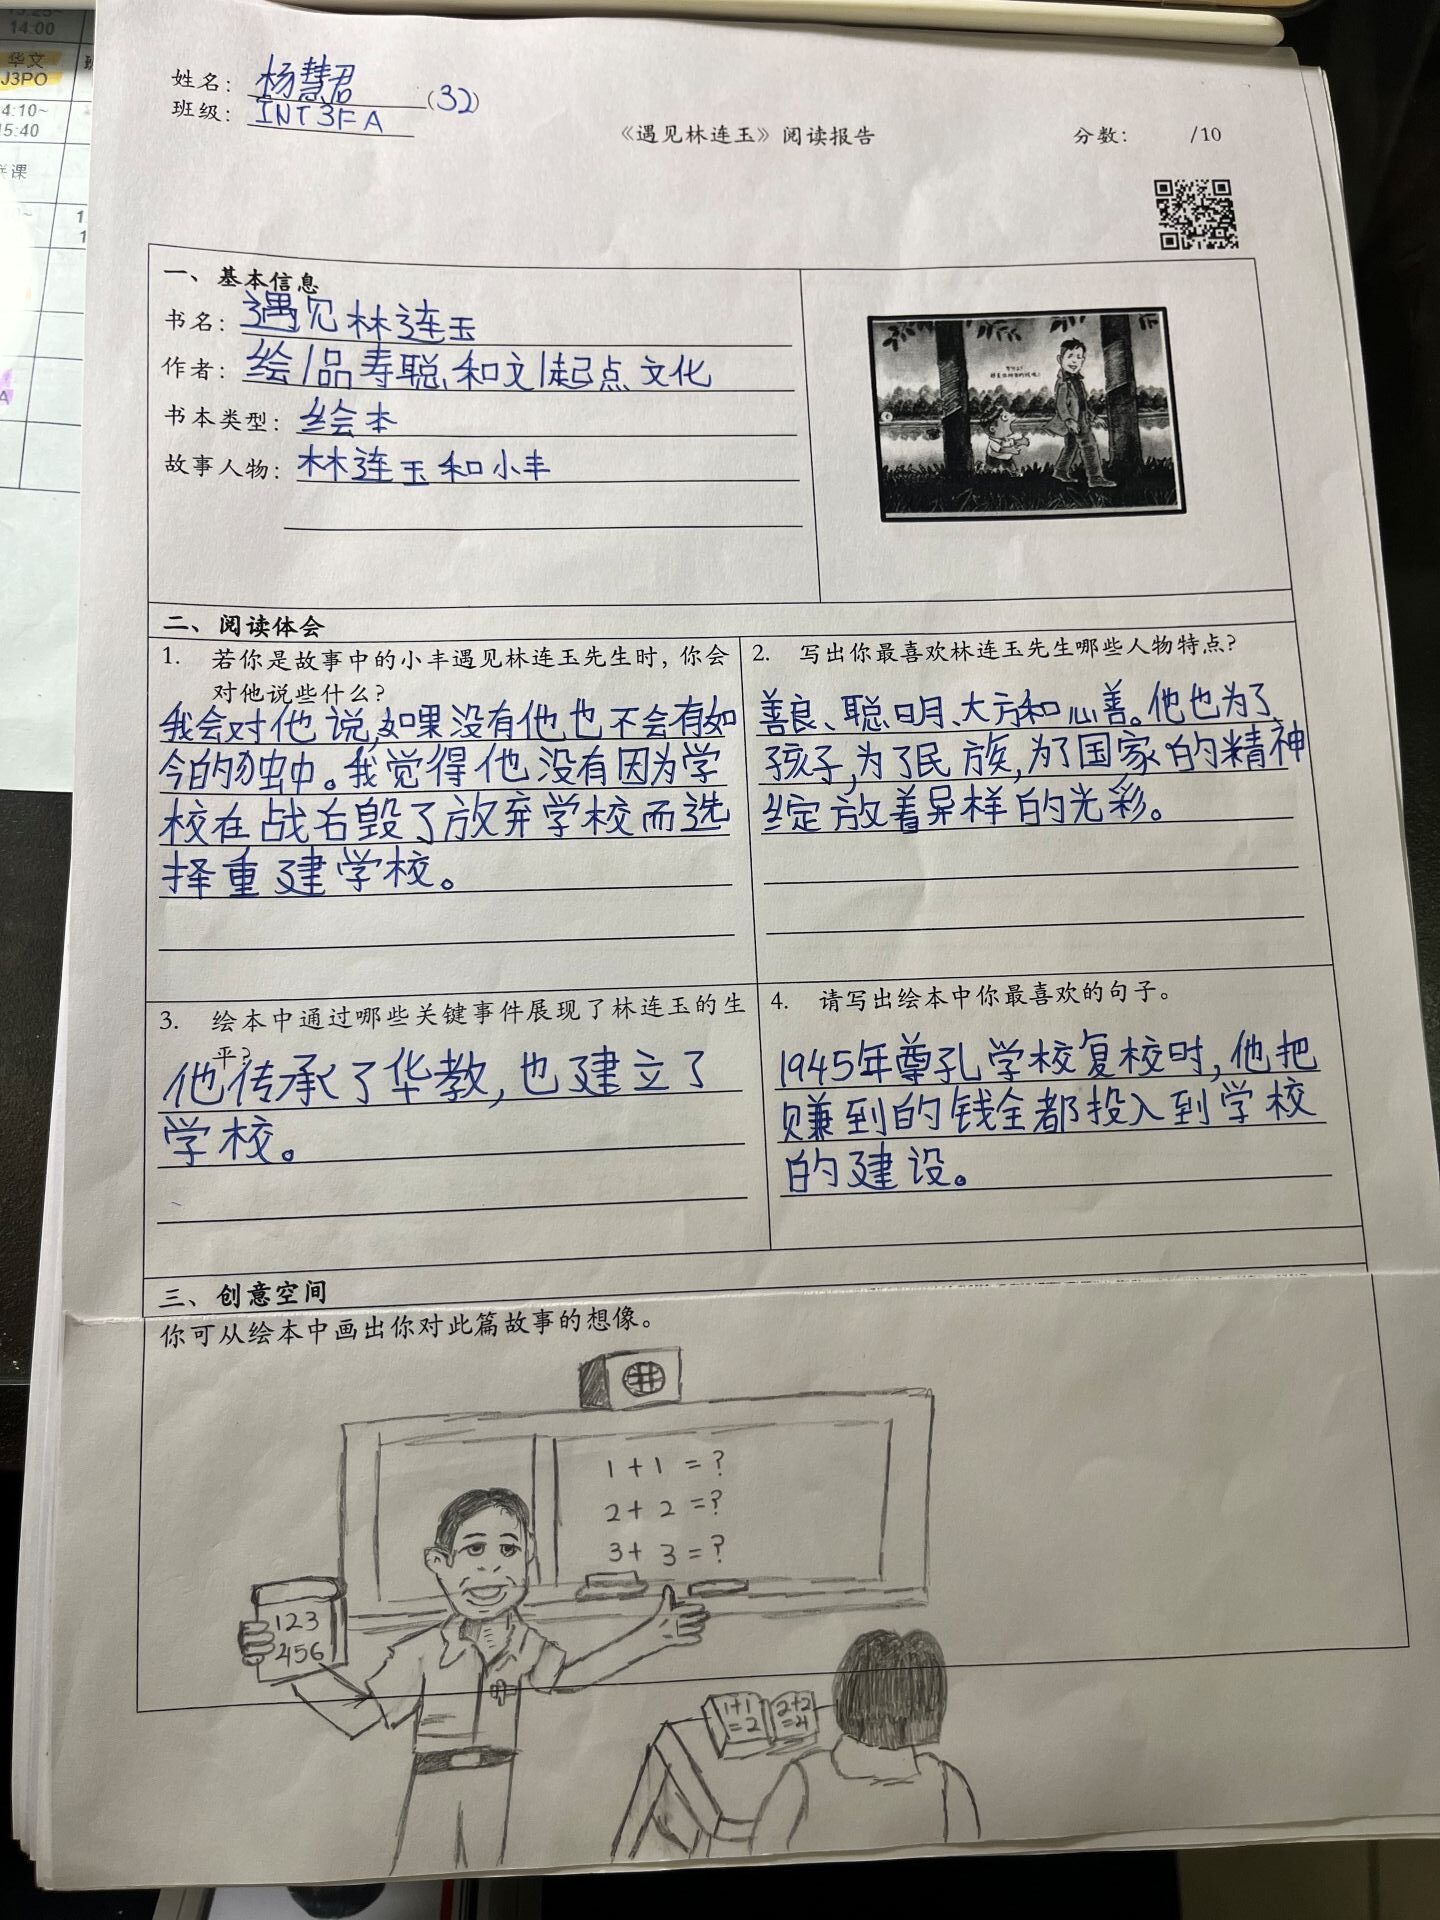 13:25~
14:00
华文
J3PO
4:10~
15:40
课
姓名：杨慧君 (32)
班级：INT3FA
《遇见林连玉》阅读报告
分数： /10
一、基本信息
书名：遇见林连玉
作者：绘/品寿聪和文/起点文化
书本类型：绘本
故事人物：林连玉和小丰
二、阅读体会
1. 若你是故事中的小丰遇见林连玉先生时，你会
对他说些什么？
我会对他说，如果没有他也不会有如
今的独中。我觉得他没有因为学
校在战右毁了放弃学校而选
择重建学校。
2. 写出你最喜欢林连玉先生哪些人物特点？
善良、聪明、大方和心善。他也为了
孩子，为了民族，为了国家的精神
绽放着异样的光彩。
3. 绘本中通过哪些关键事件展现了林连玉的生
平？
他传承了华教，也建立了
学校。
4. 请写出绘本中你最喜欢的句子。
1945年尊孔学校复校时，他把
赚到的钱全都投入到学校
的建设。
三、创意空间
你可从绘本中画出你对此篇故事的想像。
1+1=?
2+2=?
3+3=?
123
456
1+1
=2
2+2
=4